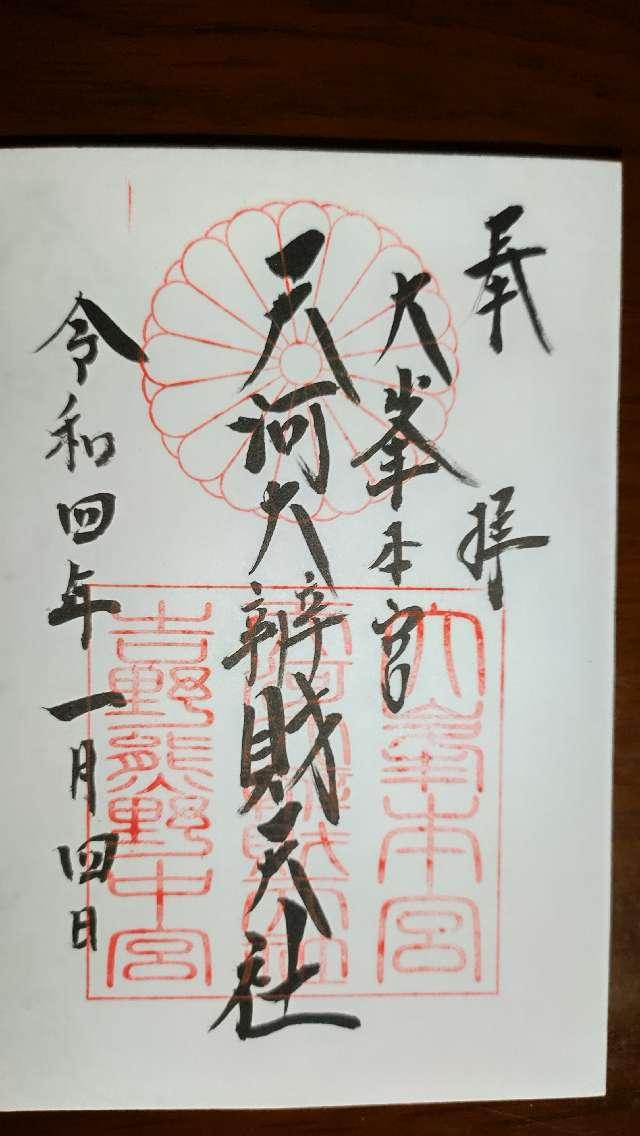 奉拝
大峯本宮
天河大辨財天社
令和四年一月四日
大峯本宮
天河大辨財天社
吉野熊野中宮